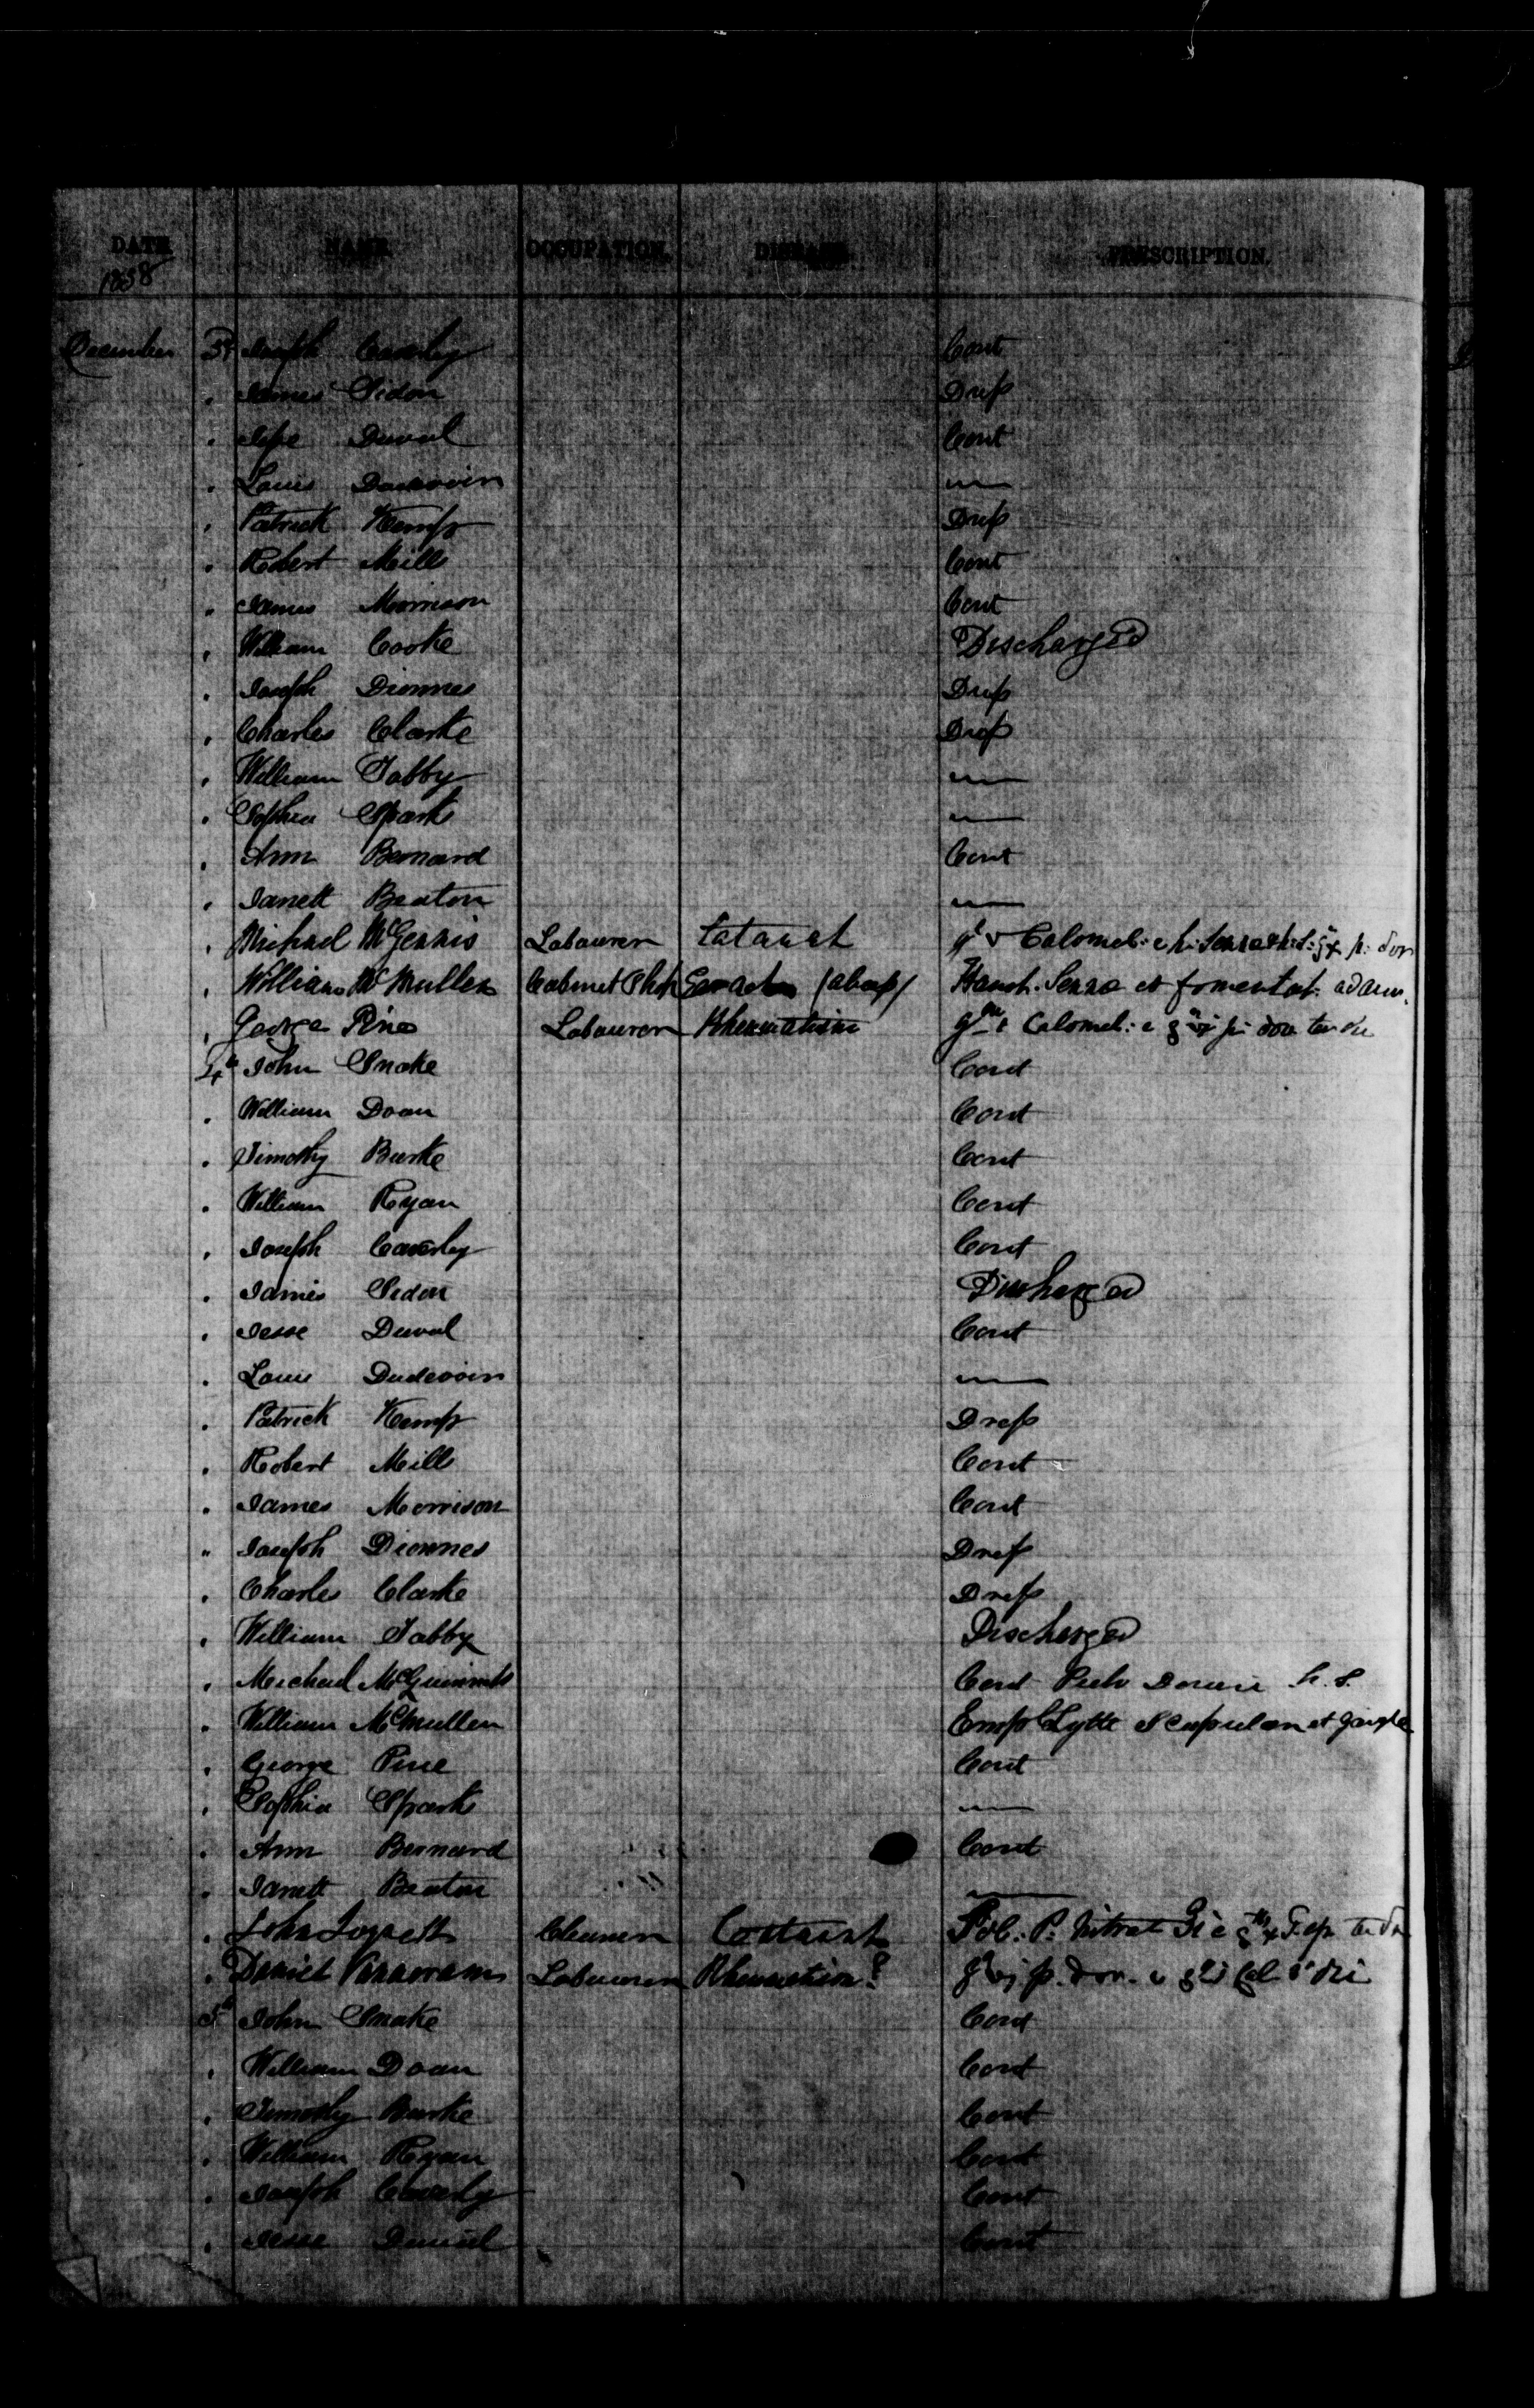 DATE NAME OCCUPATION. DISEASE PRESCRIPTION.
1858
December 3d Joseph Caverly Cont
" James Sidon Dress
" Jesse Duval Cont
" Louis Dudevoir —
" Patrick Kemp Dress
" Robert Mills Cont
" James Morrison Cont
" William Cooke Discharged
" Joseph Dionnes Dress
" Charles Clarke Dress
" William Tabby —
" Sophia Sparks —
" Ann Bernard Cont
" Janett Beaton —
" Michael McGennis Labourer Catarrh Calomel:
" William McMullen Cabinet Haust. Senna et fomentat.
" George Pine Labourer Rheumatism Calomel:
4th John Snake Cont
" William Doan Cont
" Timothy Burke Cont
" William Ryan Cont
" Joseph Caverly Cont
" James Sidon Discharged
" Jesse Duval Cont
" Louis Dudevoir —
" Patrick Kemp Dress
" Robert Mills Cont
" James Morrison Cont
" Joseph Dionnes Dress
" Charles Clarke Dress
" William Tabby Discharged
" Michael Cont Pulv Doveri h.s.
" William McMullen Emp Lytte Scapulam et gargle
" George Pine Cont
" Sophia Sparks —
" Ann Bernard Cont
" Janett Beaton —
" John Catarrh Nitrat
" Daniel Labourer Rheumatism?
5th John Snake Cont
" William Doan Cont
" Timothy Burke Cont
" William Ryan Cont
" Joseph Caverly Cont
" Jesse Duval Cont